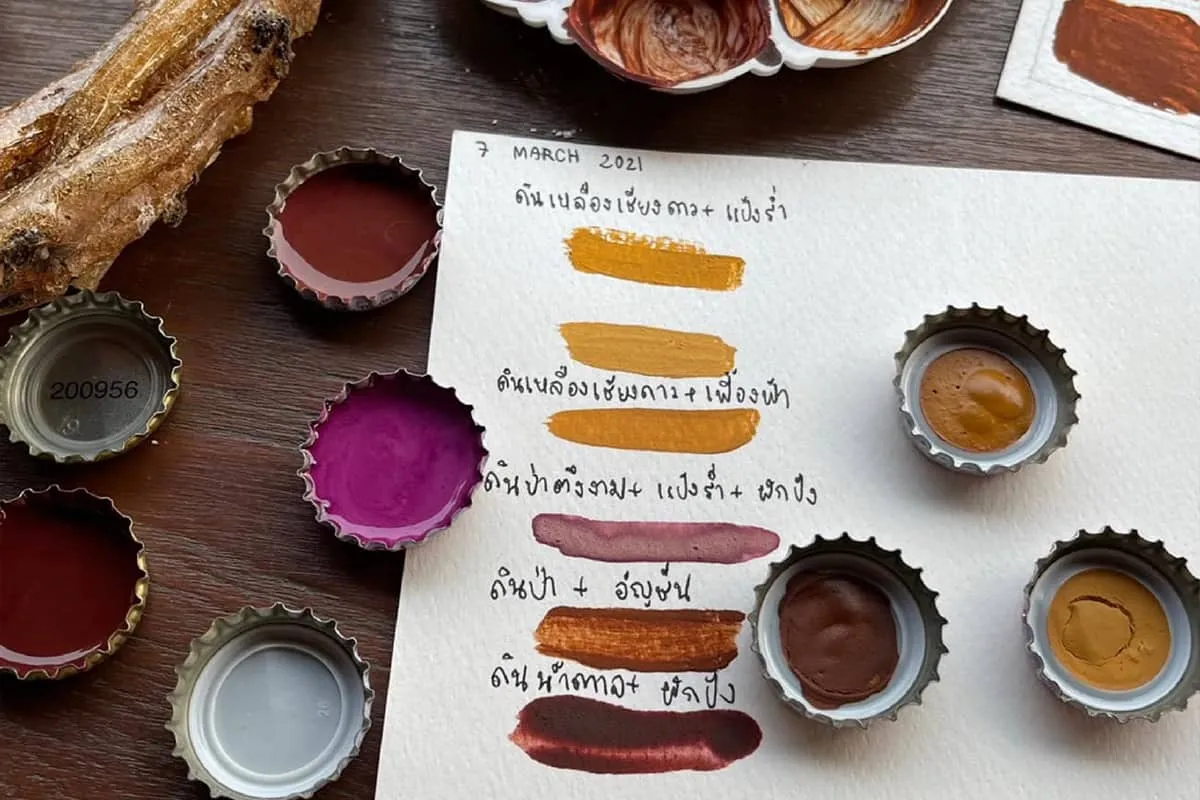 7 MARCH 2021
ดินเหลืองเชียงดาว + แป้งร่ำ
ดินเหลืองเชียงดาว + เฟื้องฟ้า
ดินป่าตึงงาม + แป้งร่ำ + ผักปัง
ดินป่า + อัญชัน
ดินน้ำตาล + ผักปัง
200956